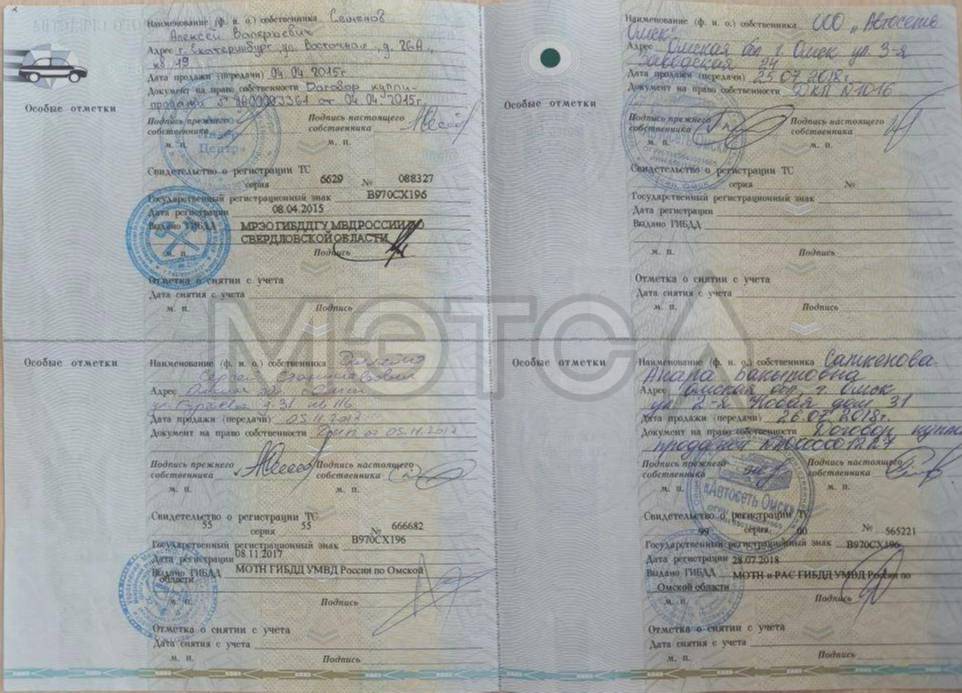 Особые отметки
Наименование (ф. и. о.) собственника Семенов
Алексей Валерьевич
Адрес г. Екатеринбург, ул. Восточная, д. 26А,
кв. 19
Дата продажи (передачи) 04.04.2015г
Документ на право собственности Договор купли-
продажи от 04.04.2015г.
Подпись прежнего собственника
Подпись настоящего собственника
м. п.
м. п.
Центр
Свидетельство о регистрации ТС
серия 6629 № 088327
Государственный регистрационный знак В970СХ196
Дата регистрации 08.04.2015
Выдано ГИБДД МРЭО ГИБДД ГУ МВД РОССИИ ПО
СВЕРДЛОВСКОЙ ОБЛАСТИ
м. п. Подпись
Отметка о снятии с учета
Дата снятия с учета
м. п. Подпись
Особые отметки
Наименование (ф. и. о.) собственника ООО "Автосеть
Омск"
Адрес Омская обл г. Омск ул. 3-я
Заводская 24
Дата продажи (передачи) 25.07.2018г.
Документ на право собственности ДКП N1016
Подпись прежнего собственника
Подпись настоящего собственника
м. п.
м. п.
Свидетельство о регистрации ТС
серия №
Государственный регистрационный знак
Дата регистрации
Выдано ГИБДД
м. п. Подпись
Отметка о снятии с учета
Дата снятия с учета
м. п. Подпись
МЭТС
Особые отметки
Наименование (ф. и. о.) собственника
Сергей
Адрес
Дата продажи (передачи) 05.11.2017
Документ на право собственности от 05.11.2017
Подпись прежнего собственника
Подпись настоящего собственника
м. п.
м. п.
Свидетельство о регистрации ТС
55 серия 55 № 666682
Государственный регистрационный знак В970СХ196
Дата регистрации 08.11.2017
Выдано ГИБДД МОТН ГИБДД УМВД России по Омской
области
м. п. Подпись
Отметка о снятии с учета
Дата снятия с учета
м. п. Подпись
Особые отметки
Наименование (ф. и. о.) собственника Саткенова
Анара Бакытовна
Адрес Омская обл, г. Омск
ул 2-я Новая дом 31
Дата продажи (передачи) 26.07.2018г.
Документ на право собственности Договор купли
продажи
Подпись прежнего собственника
Подпись настоящего собственника
м. п.
м. п.
«Автосеть Омск»
Свидетельство о регистрации ТС
99 серия 00 № 565221
Государственный регистрационный знак В970СХ196
Дата регистрации 28.07.2018
Выдано ГИБДД МОТН и РАС ГИБДД УМВД России по
Омской области
м. п. Подпись
Отметка о снятии с учета
Дата снятия с учета
м. п. Подпись